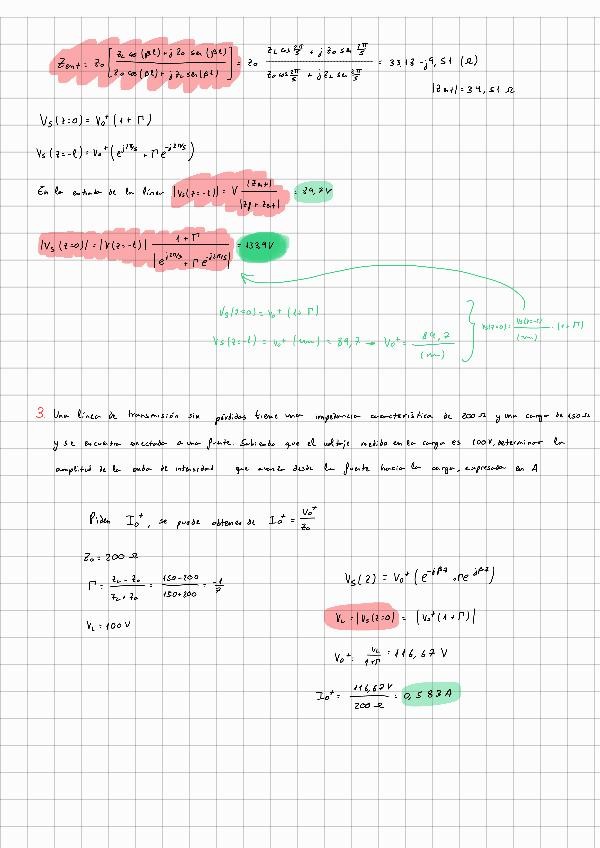 Zent = Z0 [ (ZL cos(βl) + j Z0 sen(βl)) / (Z0 cos(βl) + j ZL sen(βl)) ] = Z0 (ZL cos 2π/5 + j Z0 sen 2π/5) / (Z0 cos 2π/5 + j ZL sen 2π/5) = 33,13 - j9,51 (Ω)
|Zent| = 34,51 Ω
Vs(z=0) = V0+ (1+Γ)
Vs(z=-l) = V0+ (e^{j2π/5} + Γ e^{-j2π/5})
En la entrada de la línea |Vs(z=-l)| = V |Zent| / |Zg + Zent| = 89,7 V
|Vs(z=0)| = |V(z=-l)| (1+Γ) / |e^{j2π/5} + Γ e^{-j2π/5}| = 133,9 V
Vs(z=0) = V0+ (1+Γ)
Vs(z=-l) = V0+ (m) = 89,7 → V0+ = 89,7 / (m) } Vs(z=0) = Vs(z=-l) / (m) · (1+Γ)
3. Una línea de transmisión sin pérdidas tiene una impedancia característica de 200 Ω y una carga de 150 Ω
y se encuentra conectada a una fuente. Sabiendo que el voltaje medido en la carga es 100V, determinar la
amplitud de la onda de intensidad que avanza desde la fuente hacia la carga, expresada en A
Piden I0+, se puede obtener de I0+ = V0+ / Z0
Z0 = 200 Ω
Γ = (ZL - Z0) / (ZL + Z0) = (150-200) / (150+200) = -1/7
VL = 100 V
Vs(z) = V0+ (e^{-jβz} + Γe^{jβz})
VL = |Vs(z=0)| = |V0+ (1+Γ)|
V0+ = VL / (1+Γ) = 116,67 V
I0+ = 116,67 V / 200 Ω = 0,583 A